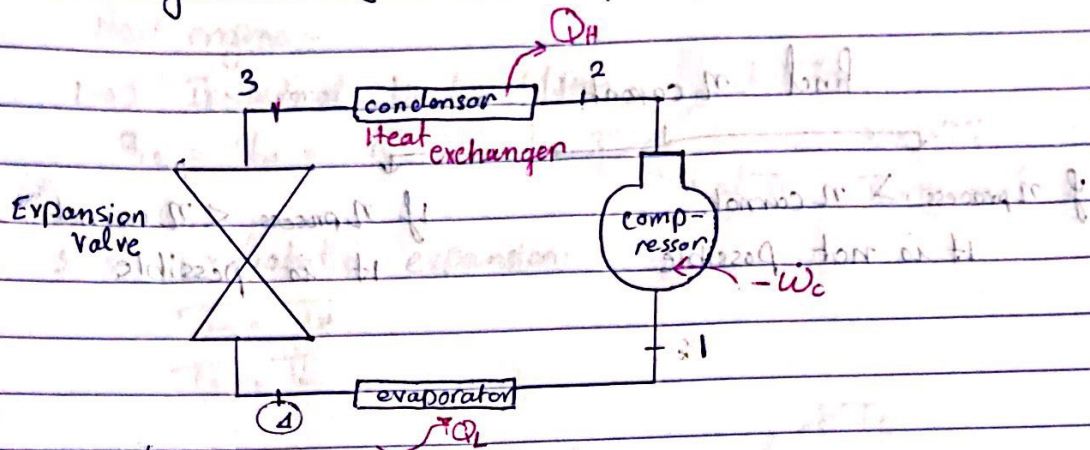 QH
3
2
condonsor
Heat exchanger
Expansion
valve
comp-
ressor
-Ẇc
1
4
evaporator
QL